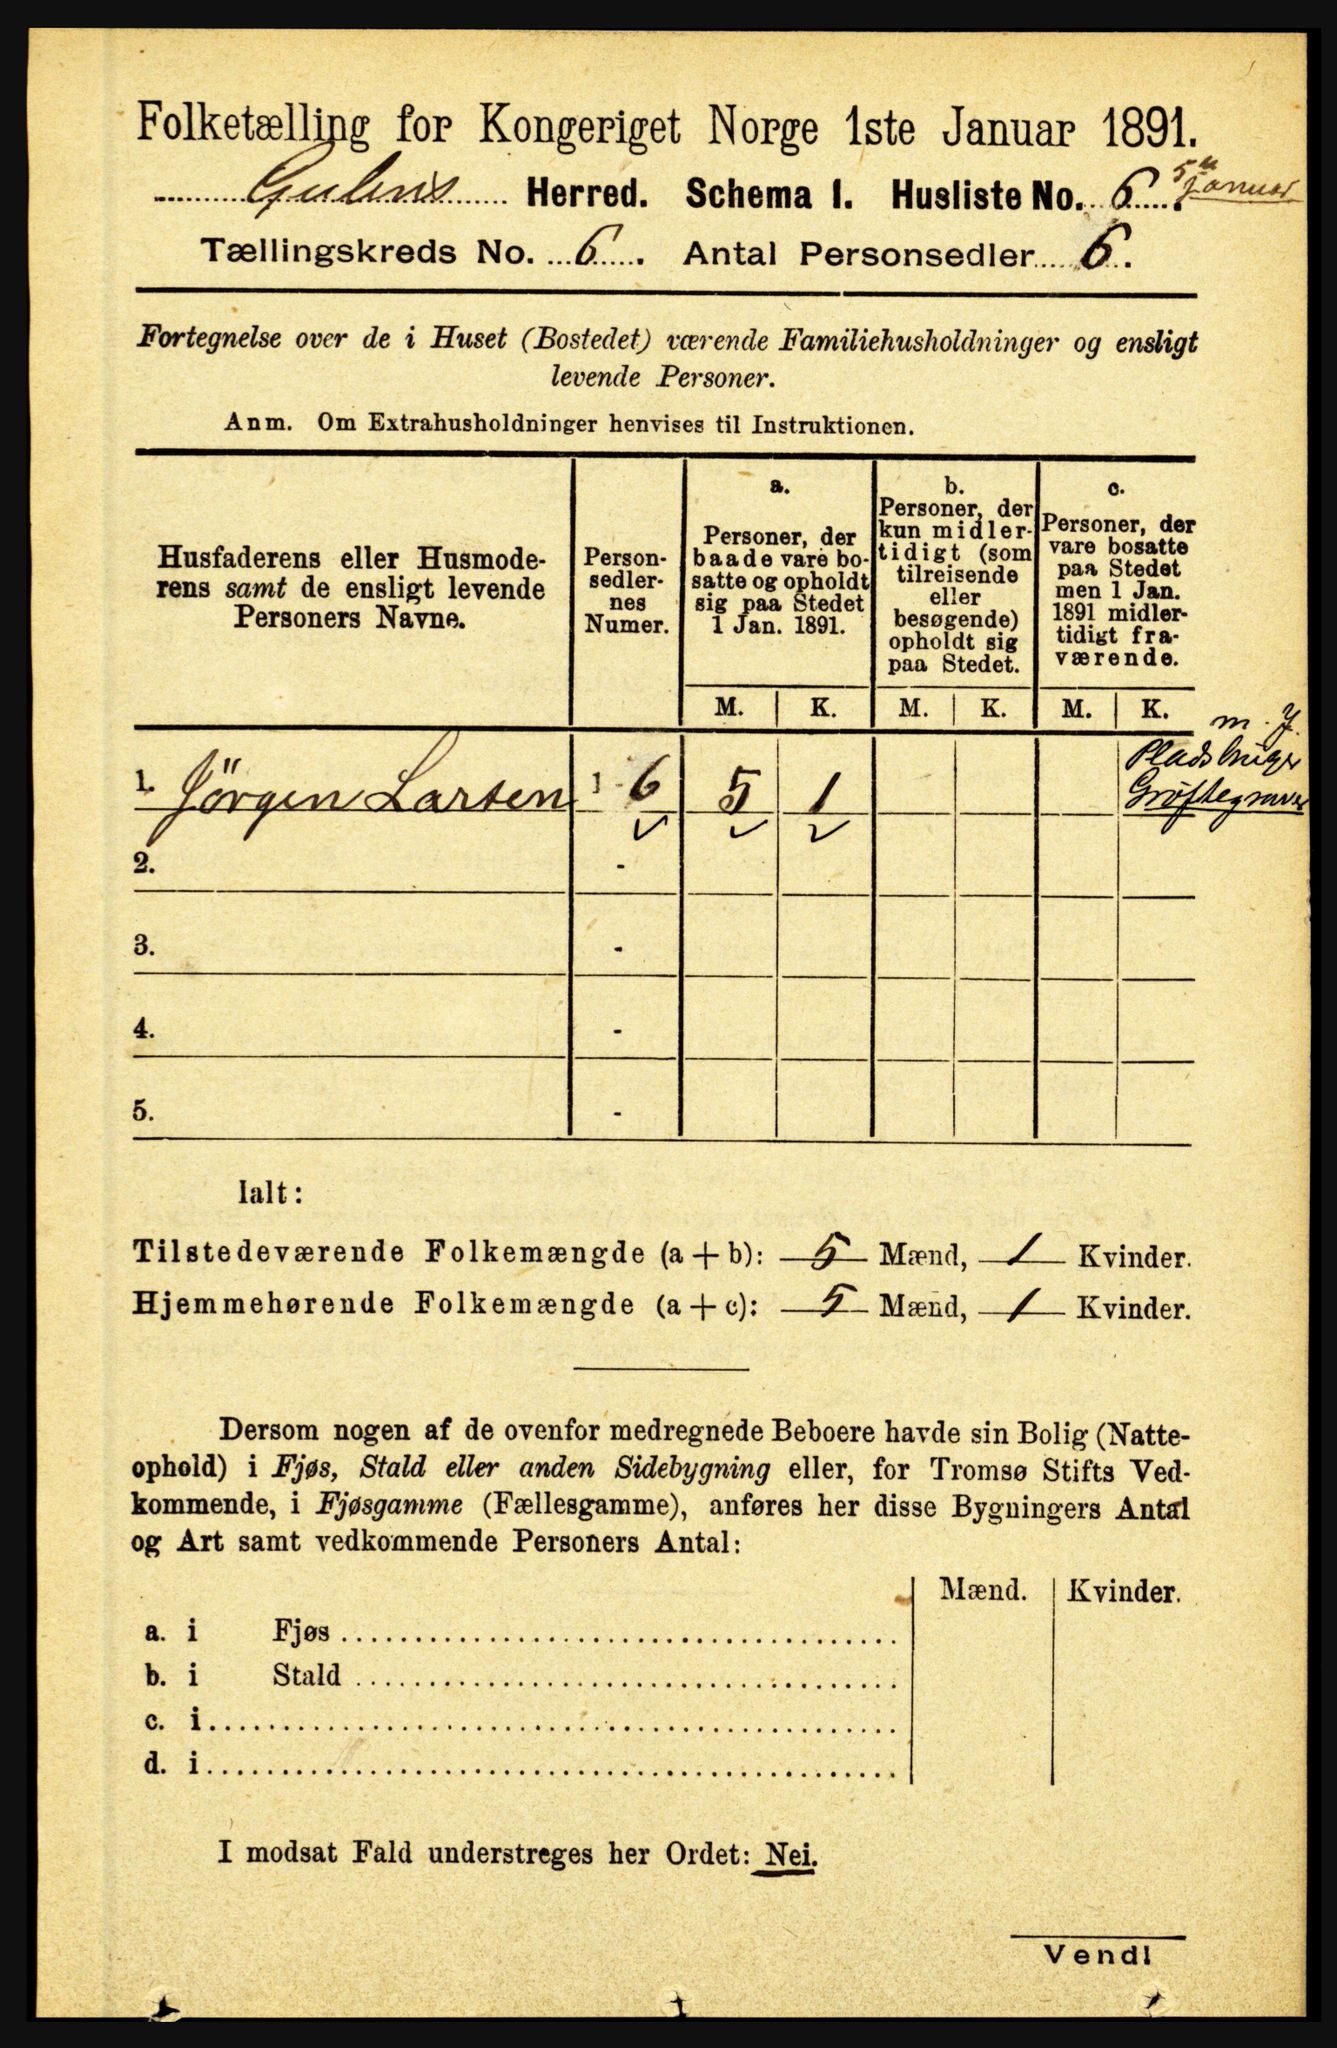 Folketælling for Kongeriget Norge 1ste Januar 1891.
Gulens Herred. Schema I. Husliste No. 6. 5te Januar
Tællingskreds No. 6. Antal Personsedler 6.
Fortegnelse over de i Huset (Bostedet) værende Familiehusholdninger og ensligt
levende Personer.
Anm. Om Extrahusholdninger henvises til Instruktionen.
Husfaderens eller Husmode-
rens samt de ensligt levende
Personers Navne.
Person-
sedler-
nes
Numer.
a.
Personer, der
baade vare bo-
satte og opholdt
sig paa Stedet
1 Jan. 1891.
b.
Personer, der
kun midler-
tidigt (som
tilreisende
eller
besøgende)
opholdt sig
paa Stedet.
c.
Personer, der
vare bosatte
paa Stedet
men 1 Jan.
1891 midler-
tidigt fra-
værende.
M. K. M. K. M. K.
m. J.
Pladsbruger
Grøftegraver
1. Jørgen Larsen 1 - 6 5 1
2. -
3. -
4. -
5. -
Ialt:
Tilstedeværende Folkemængde (a + b): 5 Mænd, 1 Kvinder.
Hjemmehørende Folkemængde (a + c): 5 Mænd, 1 Kvinder.
Dersom nogen af de ovenfor medregnede Beboere havde sin Bolig (Natte-
ophold) i Fjøs, Stald eller anden Sidebygning eller, for Tromsø Stifts Ved-
kommende, i Fjøsgamme (Fællesgamme), anføres her disse Bygningers Antal
og Art samt vedkommende Personers Antal:
Mænd. Kvinder.
a. i Fjøs
b. i Stald
c. i
d. i
I modsat Fald understreges her Ordet: Nei.
Vend!